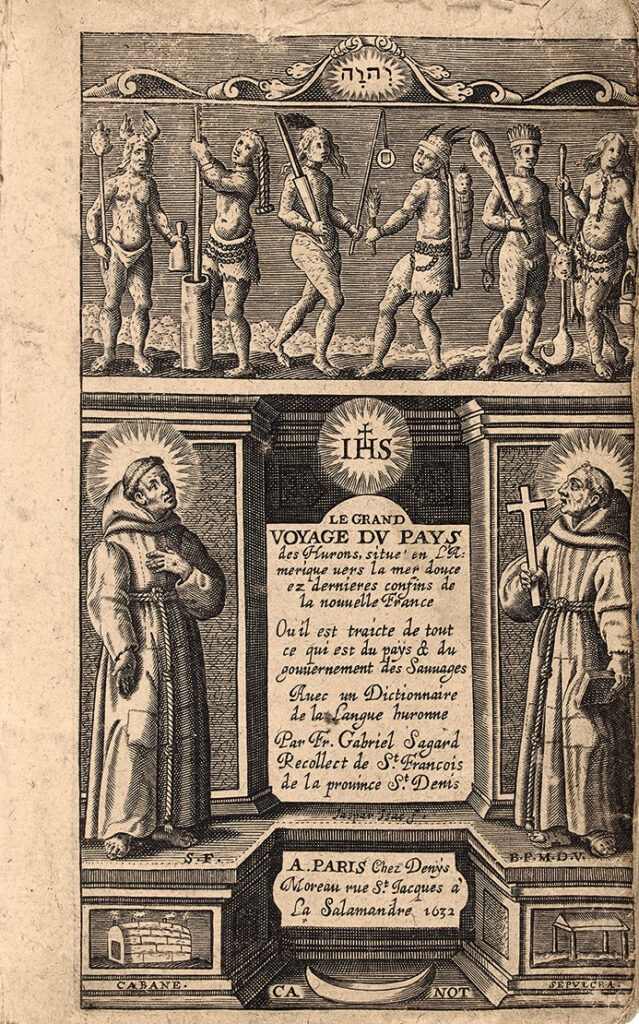 יהוה
IHS
LE GRAND
VOYAGE DV PAYS
des Hurons, situe' en L'A=
merique uers la mer douce
ez dernieres confins de
la nouuelle France
Ou il est traicte de tout
ce qui est du pays & du
gouuernement des Sauuages
Auec un Dictionnaire
de la Langue huronne
Par Fr. Gabriel Sagard
Recollect de St. Francois
de la prouince St. Denis
S.F.
B.F.M.D.V.
A. PARIS Chez Denys
Moreau rue St. Jacques a'
La Salamandre 1632
CABANE.
CA NOT
SEPVLCRA.